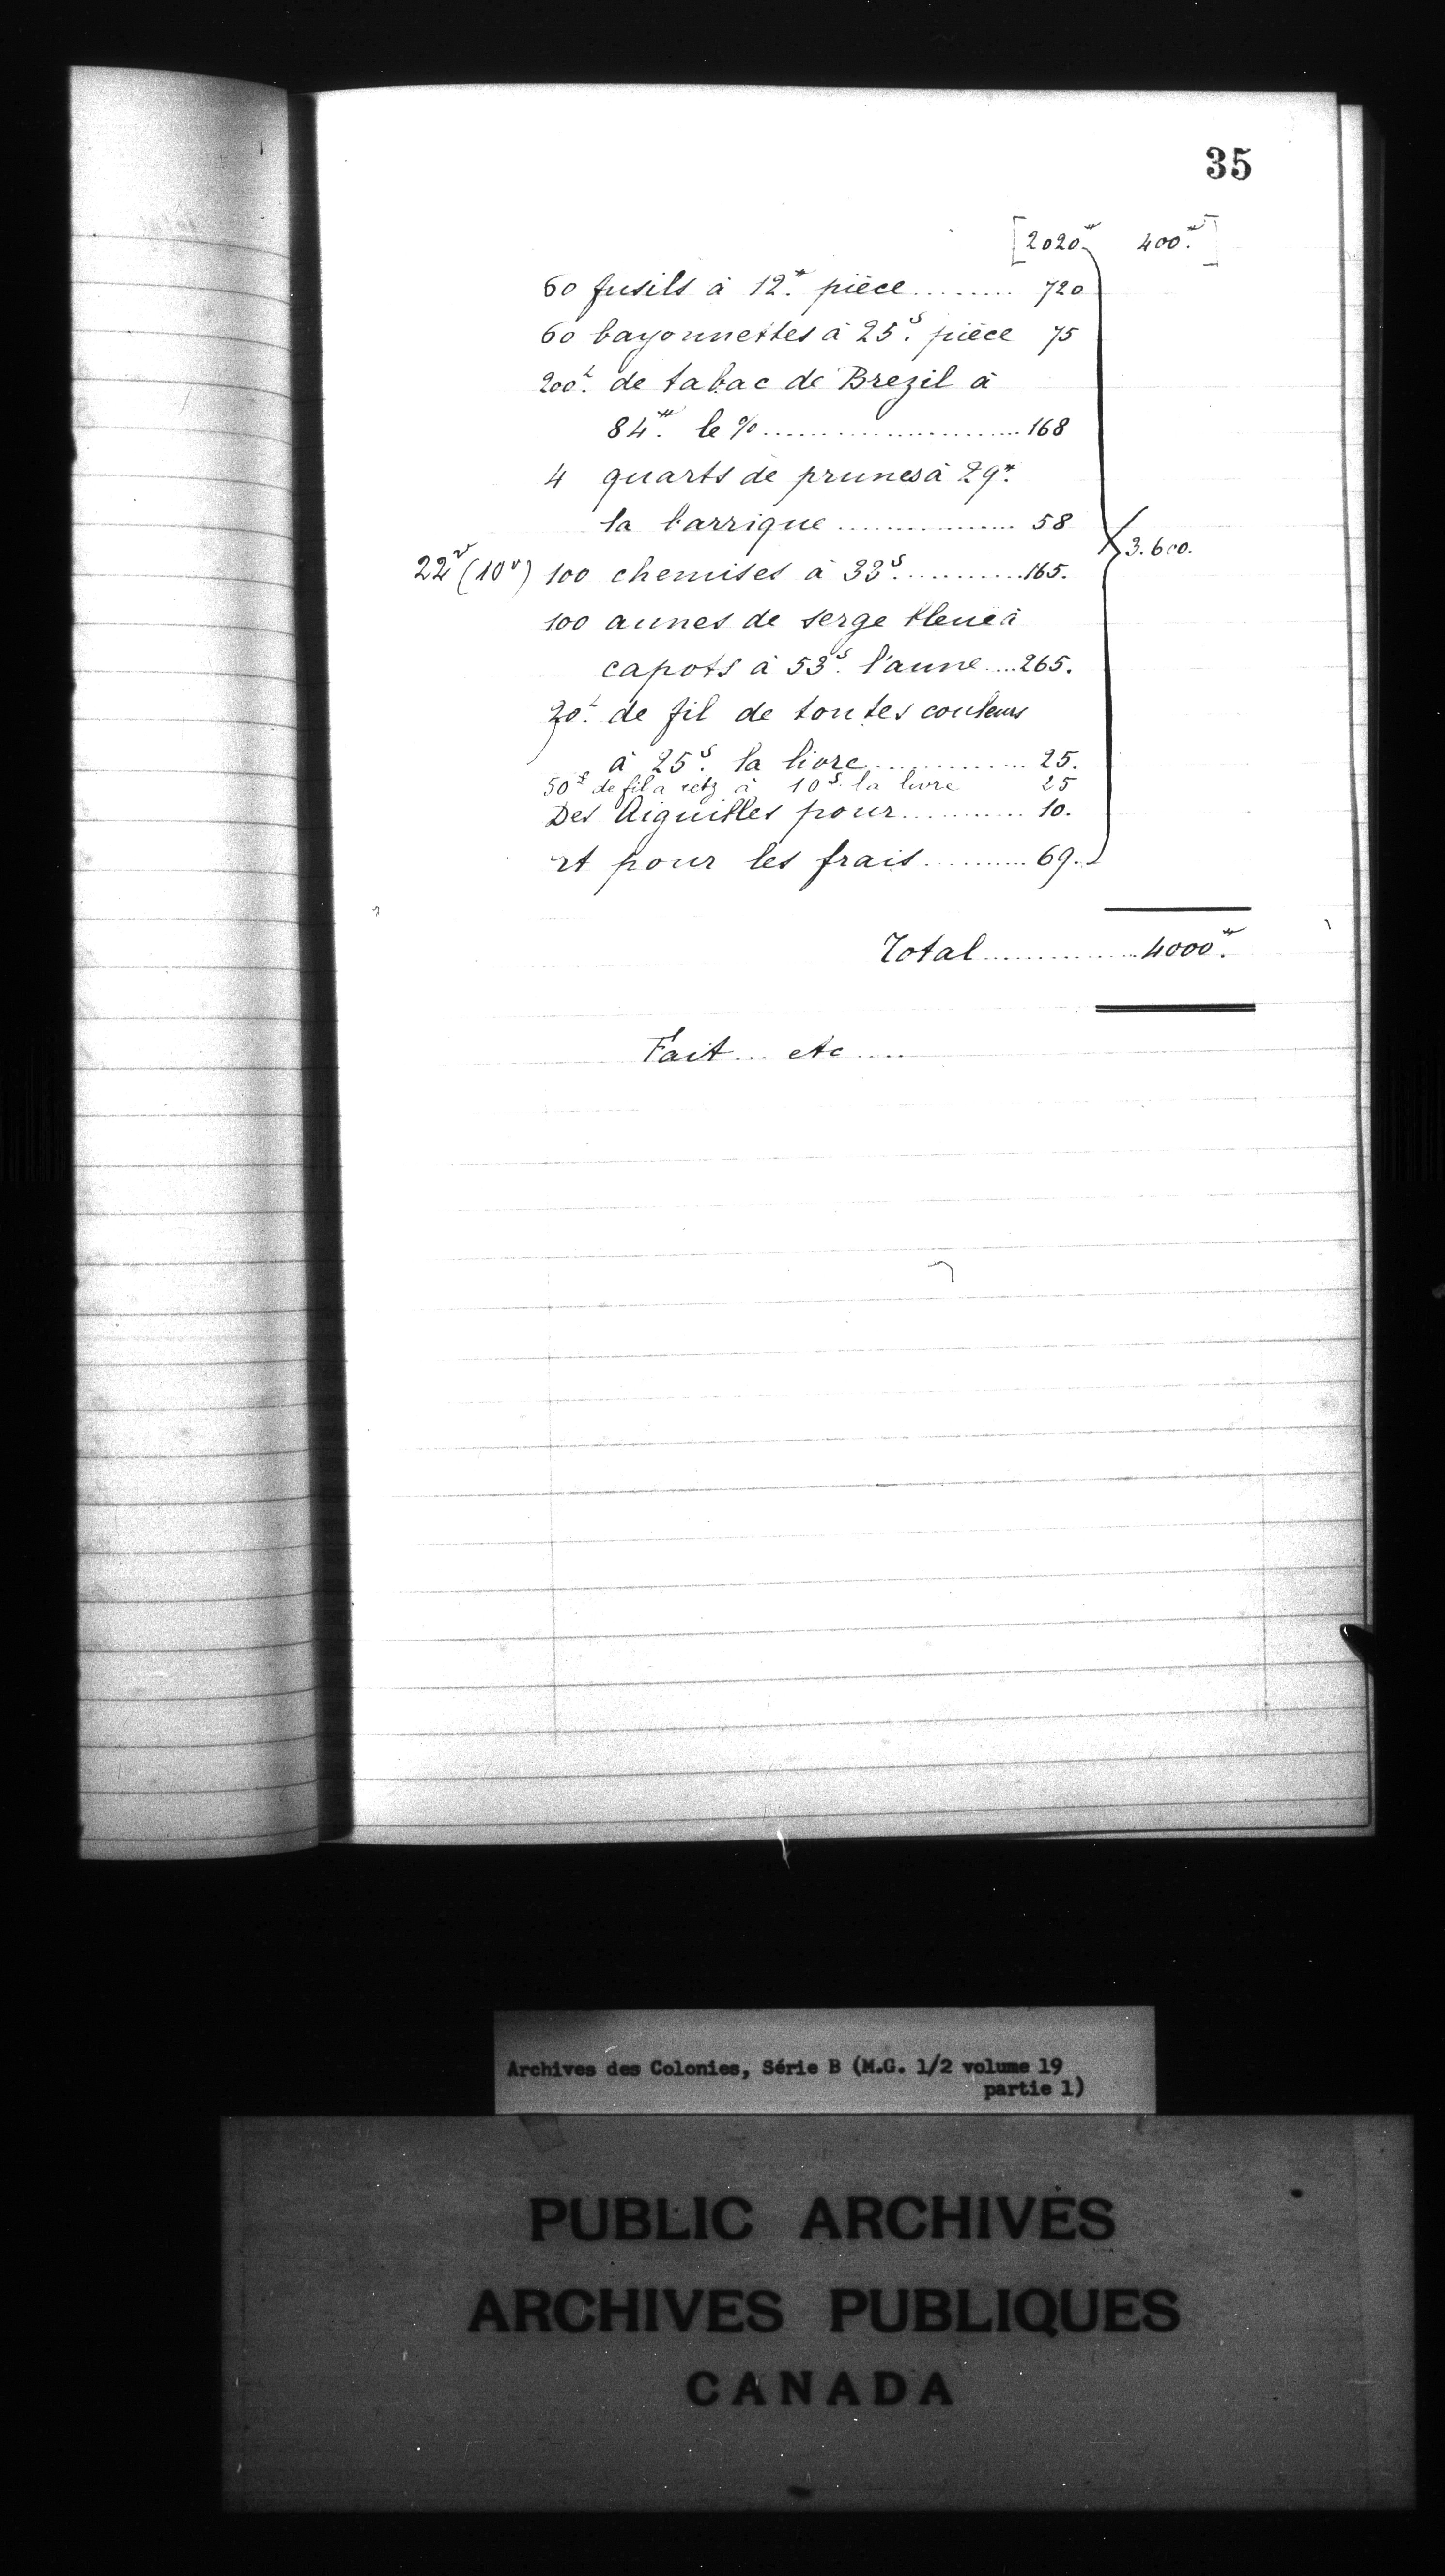 35
[2020# 400#]
60 fusils à 12# pièce ......... 720
60 bayonnettes à 25s. pièce 75
200L. de tabac de Brezil à
84#. le % ......................... 168
4 quarts de prunes à 29#
la barrique .................. 58
3.600.
22v (10v) 100 chemises à 33s ............ 165.
100 aunes de serge bleue à
capots à 53s. l'aune .... 265.
20L. de fil de toutes couleurs
à 25s. la livre ............... 25.
50L de fil a retz à 10s. la livre 25
Des Aiguilles pour ............ 10.
et pour les frais .......... 69.
Total ............... 4000#.
Fait ... etc .....
Archives des Colonies, Série B (M.G. 1/2 volume 19
partie 1)
PUBLIC ARCHIVES
ARCHIVES PUBLIQUES
CANADA